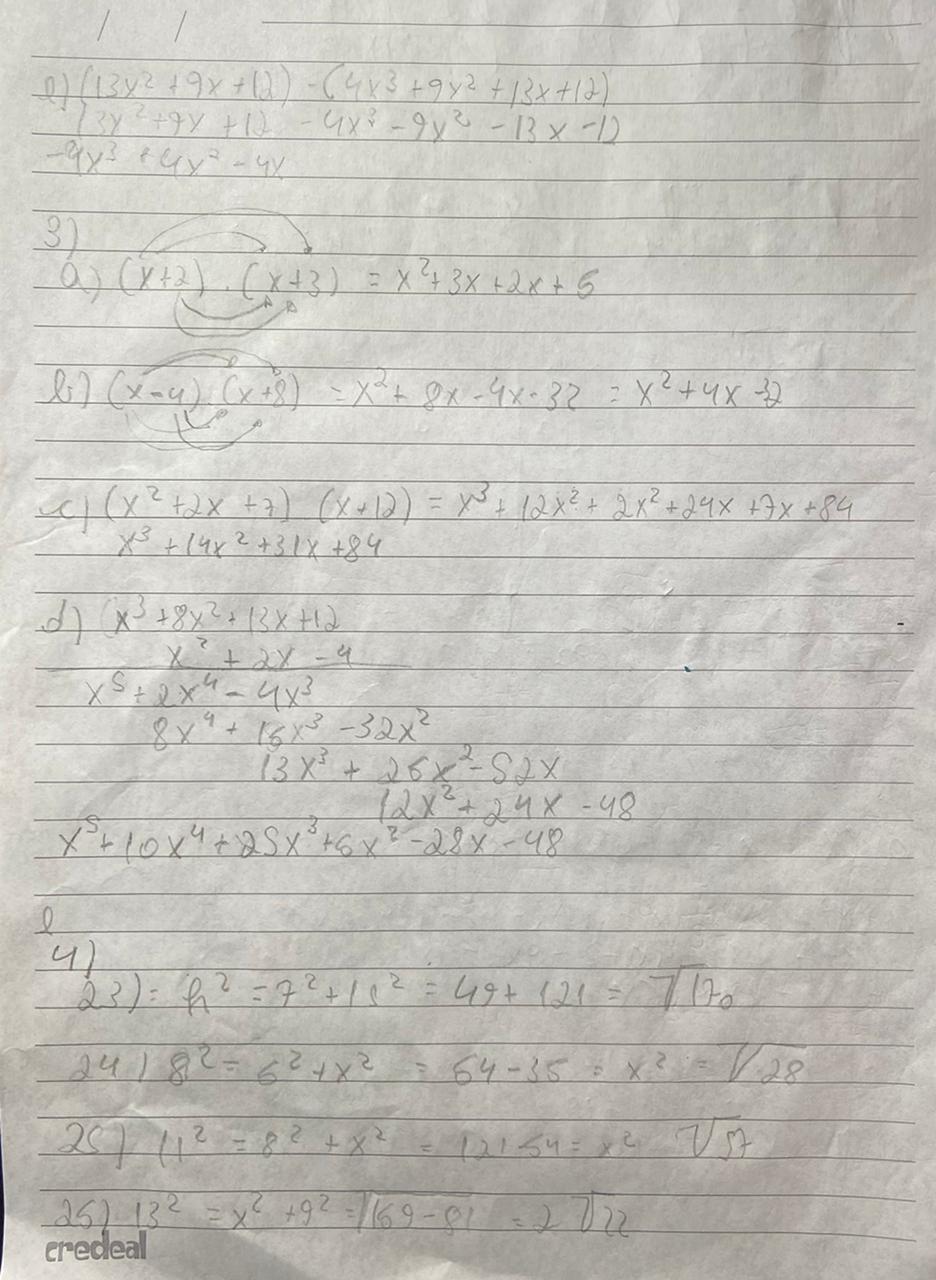 / /
e) (13x² + 9x + 12) - (4x³ + 9x² + 13x + 12)
13x² + 9x + 12 - 4x³ - 9x² - 13x - 12
-4x³ + 4x² - 4x
3)
a) (x+2) . (x+3) = x² + 3x + 2x + 6
b) (x-4) (x+8) = x² + 8x - 4x - 32 = x² + 4x - 32
c) (x² + 2x + 7) (x+12) = x³ + 12x² + 2x² + 24x + 7x + 84
x³ + 14x² + 31x + 84
d) (x³ + 8x² + 13x + 12
x² + 2x - 4
x⁵ + 2x⁴ - 4x³
8x⁴ + 16x³ - 32x²
13x³ + 26x² - 52x
12x² + 24x - 48
x⁵ + 10x⁴ + 25x³ + 6x² - 28x - 48
e
4)
23) = h² = 7² + 11² = 49 + 121 = √170
24) 8² = 6² + x² = 64 - 36 = x² = √28
25) 11² = 8² + x² = 121 - 64 = x² √57
26) 13² = x² + 9² = √169 - 81 = 2√22
credeal